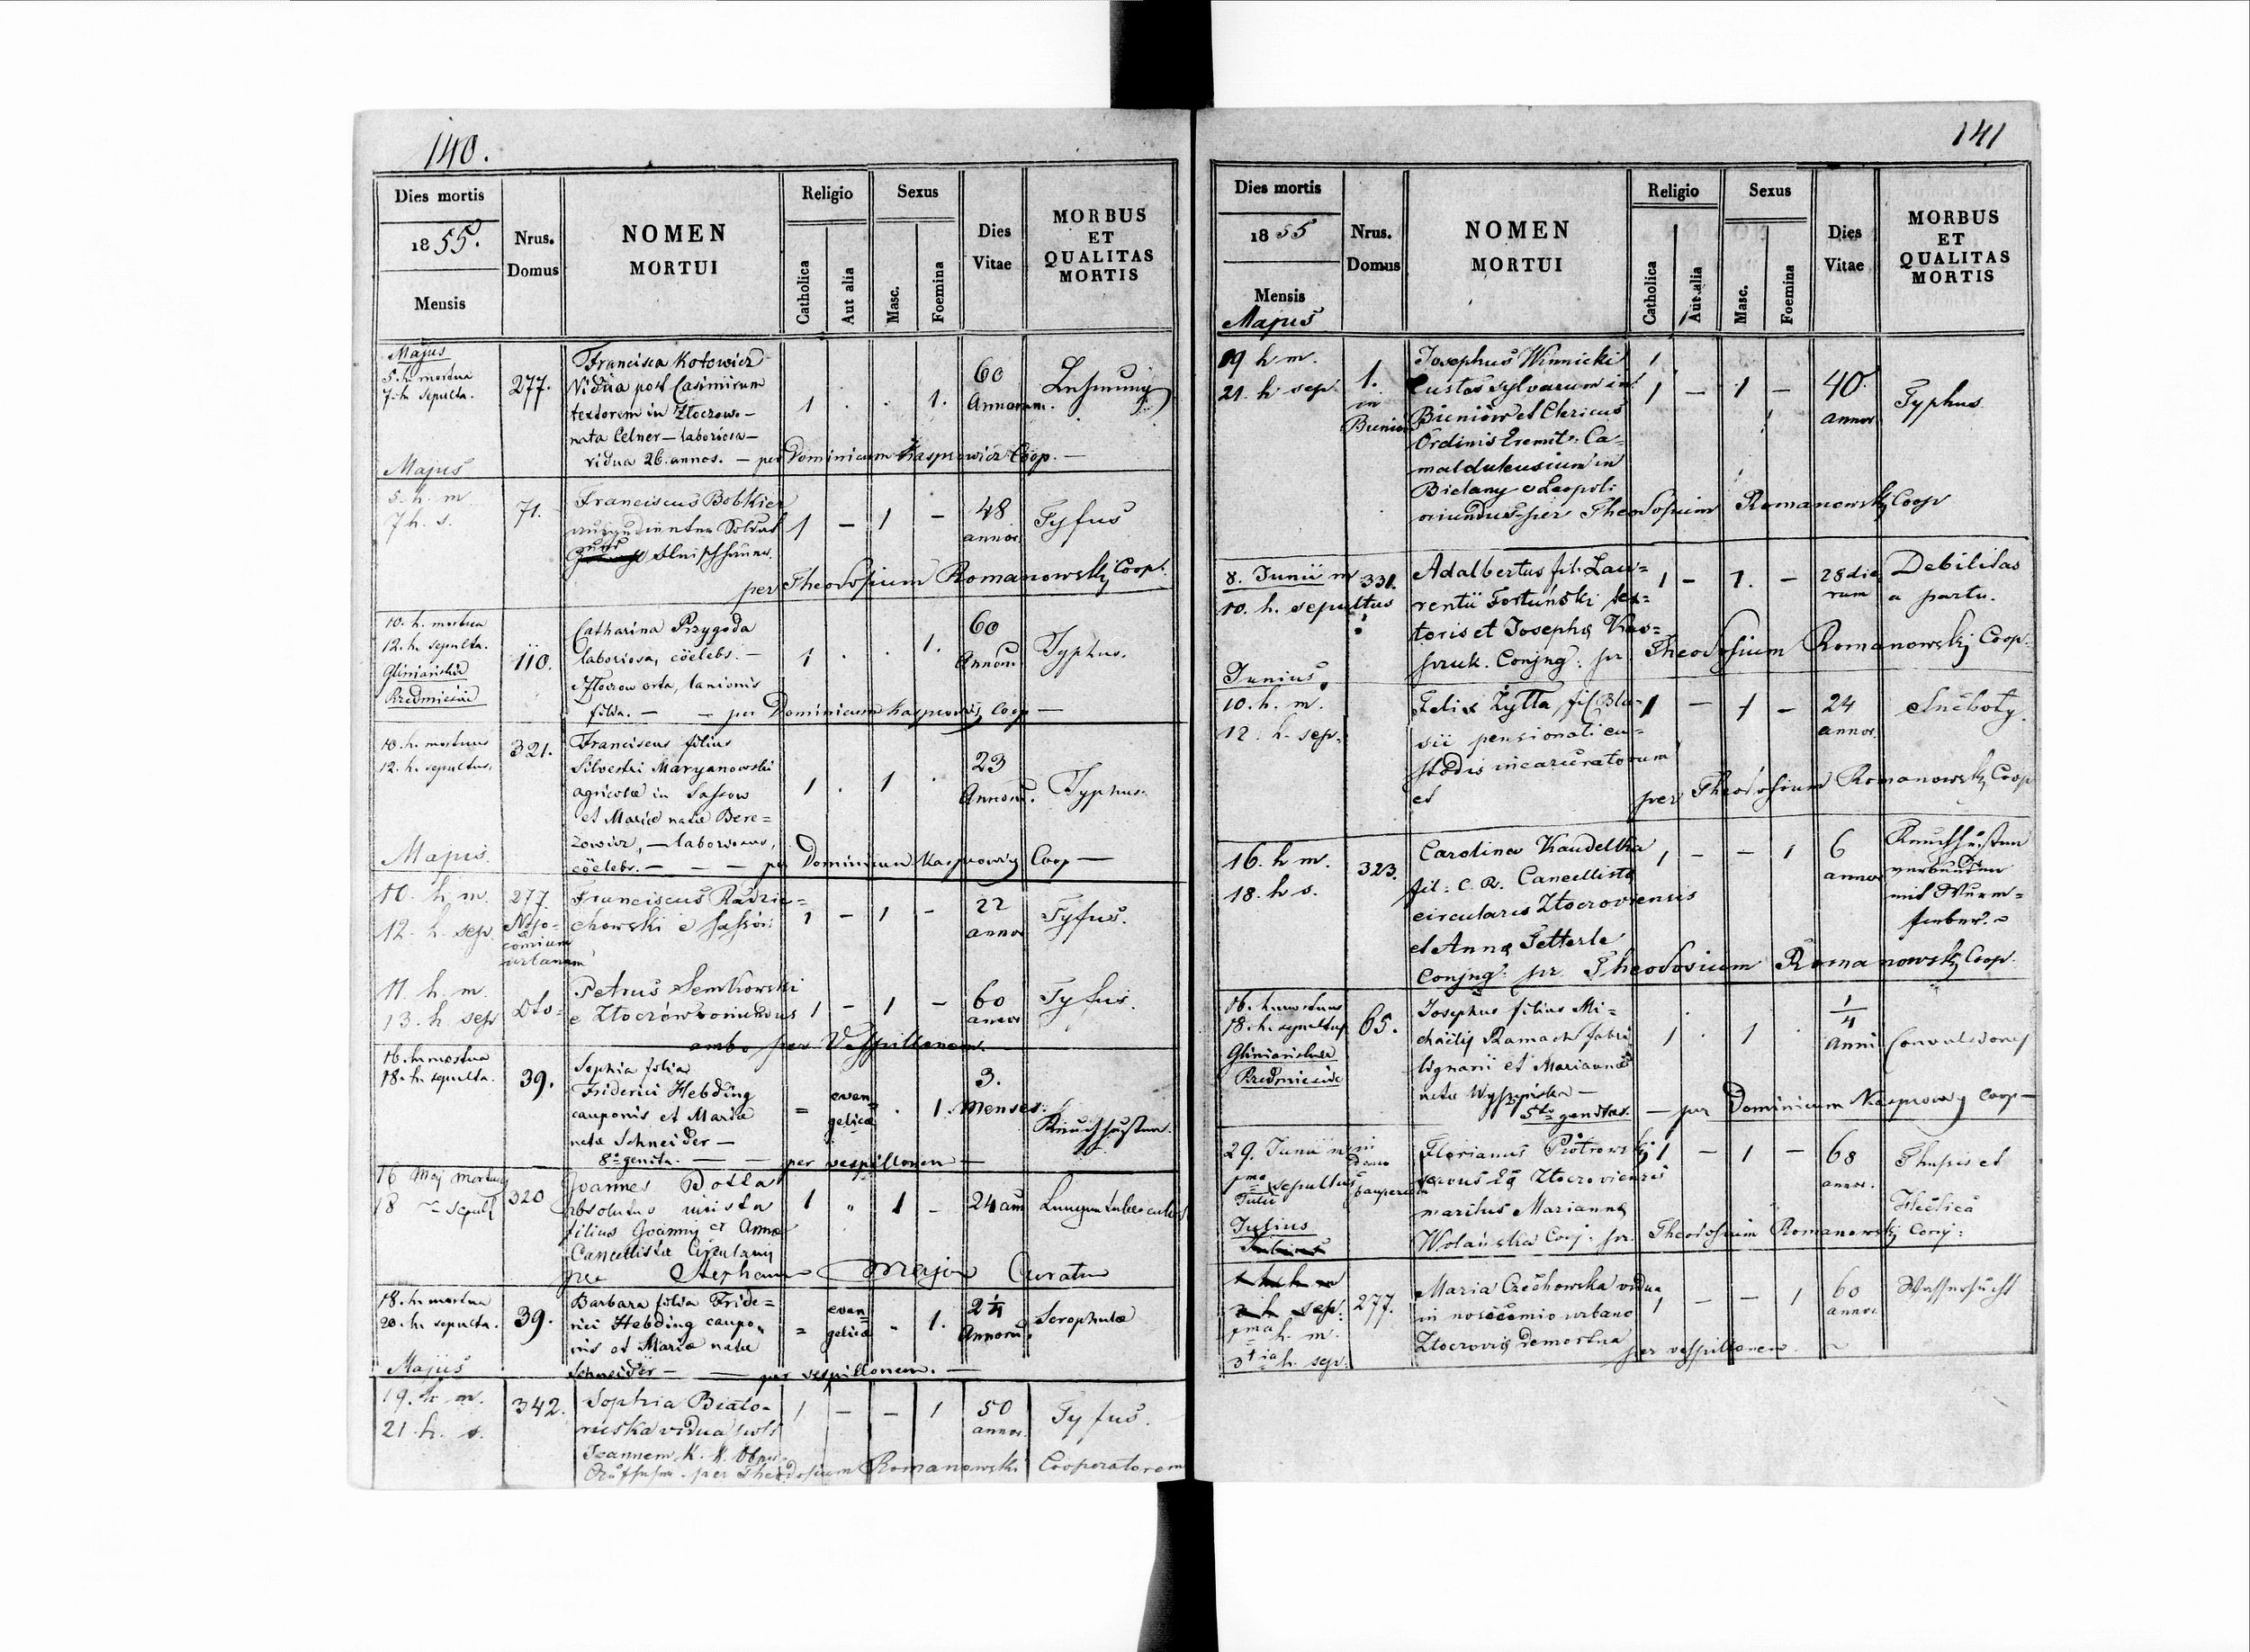 140.
Dies mortis
1855.
Mensis
Nrus.
Domus
NOMEN
MORTUI
Religio
Catholica
Aut alia
Sexus
Masc.
Foemina
Dies
Vitae
MORBUS
ET
QUALITAS
MORTIS
Majus
5. h. mortua
7. h. sepulta.
277.
Francisca Kotowicz
Vidua post Casimirum
textorem in Złoczow –
nata Celner – laboriosa –
vidua 26. annos. – per Dominicum Kasprowicz Coop. –
1 . . 1.
60
Annorum.
Lähmung
Majus
5. h. m.
7 h. s.
71.
Franciscus Bobkier
ausgedienter Soldat
per Theodosium Romanowskj Coop.
1 – 1 –
48
annor.
Tyfus
10. h. mortua
12. h. sepulta.
Gliniańskie
Przedmieście
110.
Catharina Przygoda
laboriosa, cöelebs. –
e Złoczow orta, lanionis
filia. – – per Dominicum Kasprowicz Coop –
1 . . 1.
60
Annorū
Typhus.
10. h. mortuus
12. h. sepultus.
321.
Franciscus filius
Silvestri Maryanowski
agricolæ in Sassow
et Mariæ natæ Bere=
zowicz, – laboriosus,
cöelebs. – – – per Dominicum Kasprowicz Coop –
1 . 1 .
23
Annorū.
Typhus.
Majus.
10. h. m.
12. h. sep.
277.
Noso=
comium
urbanum
Franciscus Radzie=
chowski e Sassów
1 – 1 –
22
annor
Tyfus.
11. h. m.
13. h. sep
dto
Petrus Semkowski
e Złoczów oriundus
1 – 1 –
60
annor
Tyfus.
ambo per Vespillonem.
16. h. mortua
18. h. sepulta.
39.
Sophia filia
Friderici Hebding
cauponis et Mariæ
natæ Schneider –
8º genita. – – per vespillonem –
= evan=
gelica . 1.
3.
menses.
Keuchhusten.
16 Maj mortuus
18 sepult
320
Joannes Dolla
absolutus
filius Joannis et Annæ
Cancellistæ Circularis
per Stephanum Major Curatum
1 " 1 –
24 ann
18. h. mortua
20. h. sepulta.
39.
Barbara filia Fride=
rici Hebding caupo=
nis et Mariæ natæ
Schneider – – per vespillonem. –
= evan=
gelica . 1.
2¼
Annorū.
Scrophulæ
Majus
19. h. m.
21. h. s.
342.
Sophia Biało=
ruska vidua post
Joannem K. K.
per Theodosium Romanowski Cooperatorem
1 – – 1
50
annor.
Tyfus.
141
Dies mortis
1855
Mensis
Majus
Nrus.
Domus
NOMEN
MORTUI
Religio
Catholica
Aut alia
Sexus
Masc.
Foemina
Dies
Vitae
MORBUS
ET
QUALITAS
MORTIS
19 h m.
21. h sep.
1.
in
Bieniów
Josephus Winnicki
Custos sylvarum in
Bieniów et Clericus
Ordinis Eremit: Ca=
maldulensium in
Bielany e Leopol:
oriundus per Theodosium Romanowskj Coop
1 – 1 –
40.
annor
Typhus
8. Junii m
10. h. sepultus
331.
Adalbertus fil: Lau=
rentii Fortunski sar=
toris et Josephæ Kas=
pruk. Conjug: pr. Theodosium Romanowskj Coop.
1 – 1. –
28 die
rum
Debilitas
a partu.
Junius.
10. h. m.
12. h. sep.
Felix Zytta, fil Bla=
sii pensionati cu=
stodis incarceratorum
et
per Theodosium Romanowskj Coop
1 – 1 –
24
annor.
Suchoty.
16. h m.
18. h s.
323.
Carolina Kaudelka
fil: C. R. Cancellistæ
circularis Złocroviensis
et Annæ Fetterle
Conjug: pr. Theodosium Romanowskj Coop.
1 – – 1
6
annor
Keuchhusten
verbunden
mit Wurm=
fieber.
16. h. mortuus
18. h. sepultus
Gliniańskie
Przedmieście
65.
Josephus filius Mi=
chaelis Ramach fabri
lignarii et Mariannæ
natæ Wyspiańska –
5to genitus. – per Dominicum Kasprowicz Coop –
1 . 1 .
1/4
Anni
Convulsiones
29. Junii m
1ma sepultus
Julii
in
domo
pauperum
Florianus Piotrowskj
servus Złocroviensis
maritus Mariannæ
Wolańska Conj: pr. Theodosium Romanowskj Conj:
1 – 1 –
68
annor.
Phtysis et
Hectica
Julius
1ma h. m.
3tia h. sep.
277.
Maria Czechowska vidua
in nosocomio urbano
Złocroviæ demortua
per vespillonem.
1 – – 1
60
annor.
Wassersucht